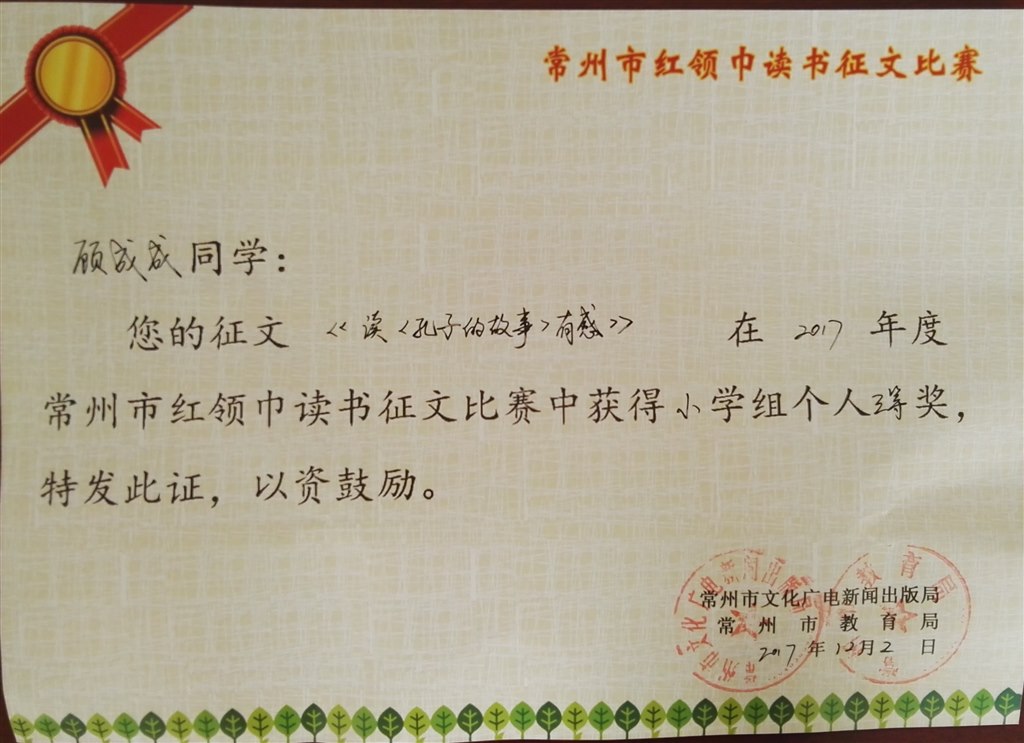 常州市红领巾读书征文比赛
顾成成同学：
您的征文 《读〈孔子的故事〉有感》 在 2017 年度
常州市红领巾读书征文比赛中获得小学组个人三等奖，
特发此证，以资鼓励。
常州市文化广电新闻出版局
常州市教育局
2017 年 12月2 日